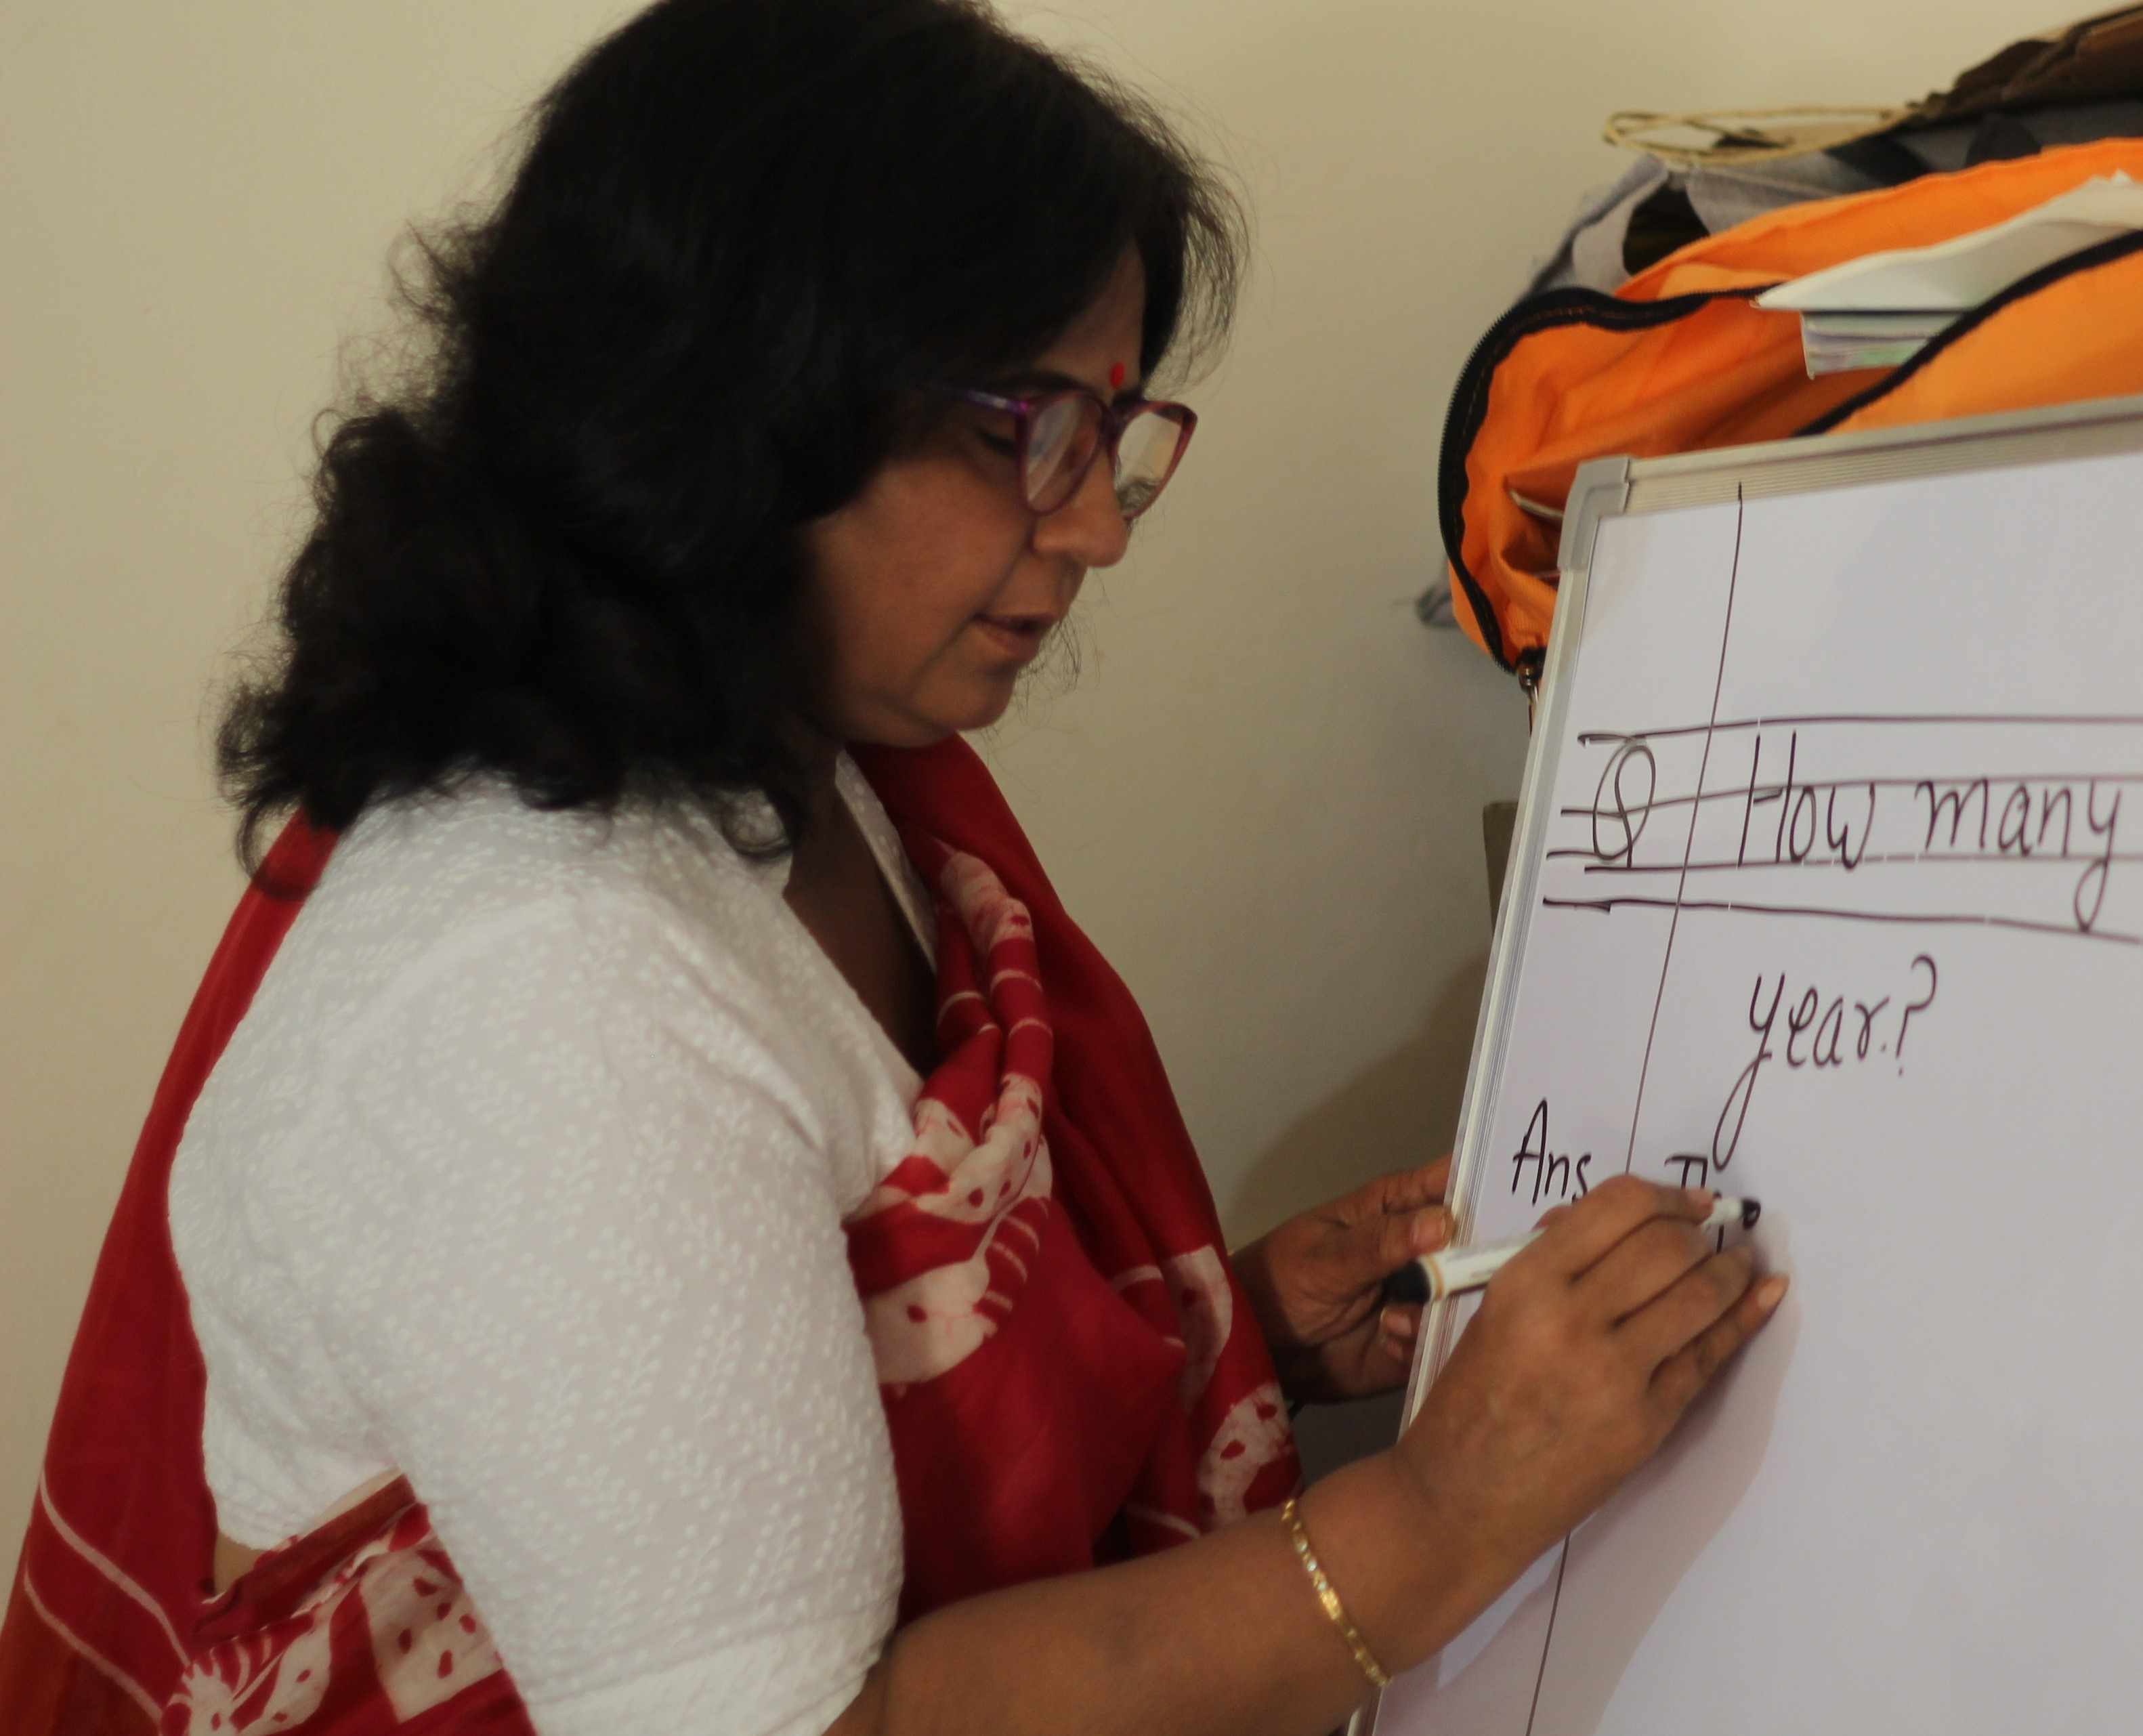 Q How many
year.?
Ans